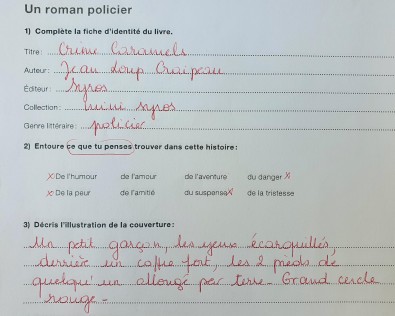 Un roman policier
1) Complète la fiche d'identité du livre.
Titre : Crime Caramels
Auteur : Jean Loup Craipeau
Éditeur : Syros
Collection : mini syros
Genre littéraire : policier
2) Entoure ce que tu penses trouver dans cette histoire :
x De l'humour de l'amour de l'aventure du danger x
x De la peur de l'amitié du suspense x de la tristesse
3) Décris l'illustration de la couverture :
Un petit garçon, les yeux écarquillés,
derrière un coffre fort, les 2 pieds de
quelqu'un allongé par terre - Grand cercle
rouge -